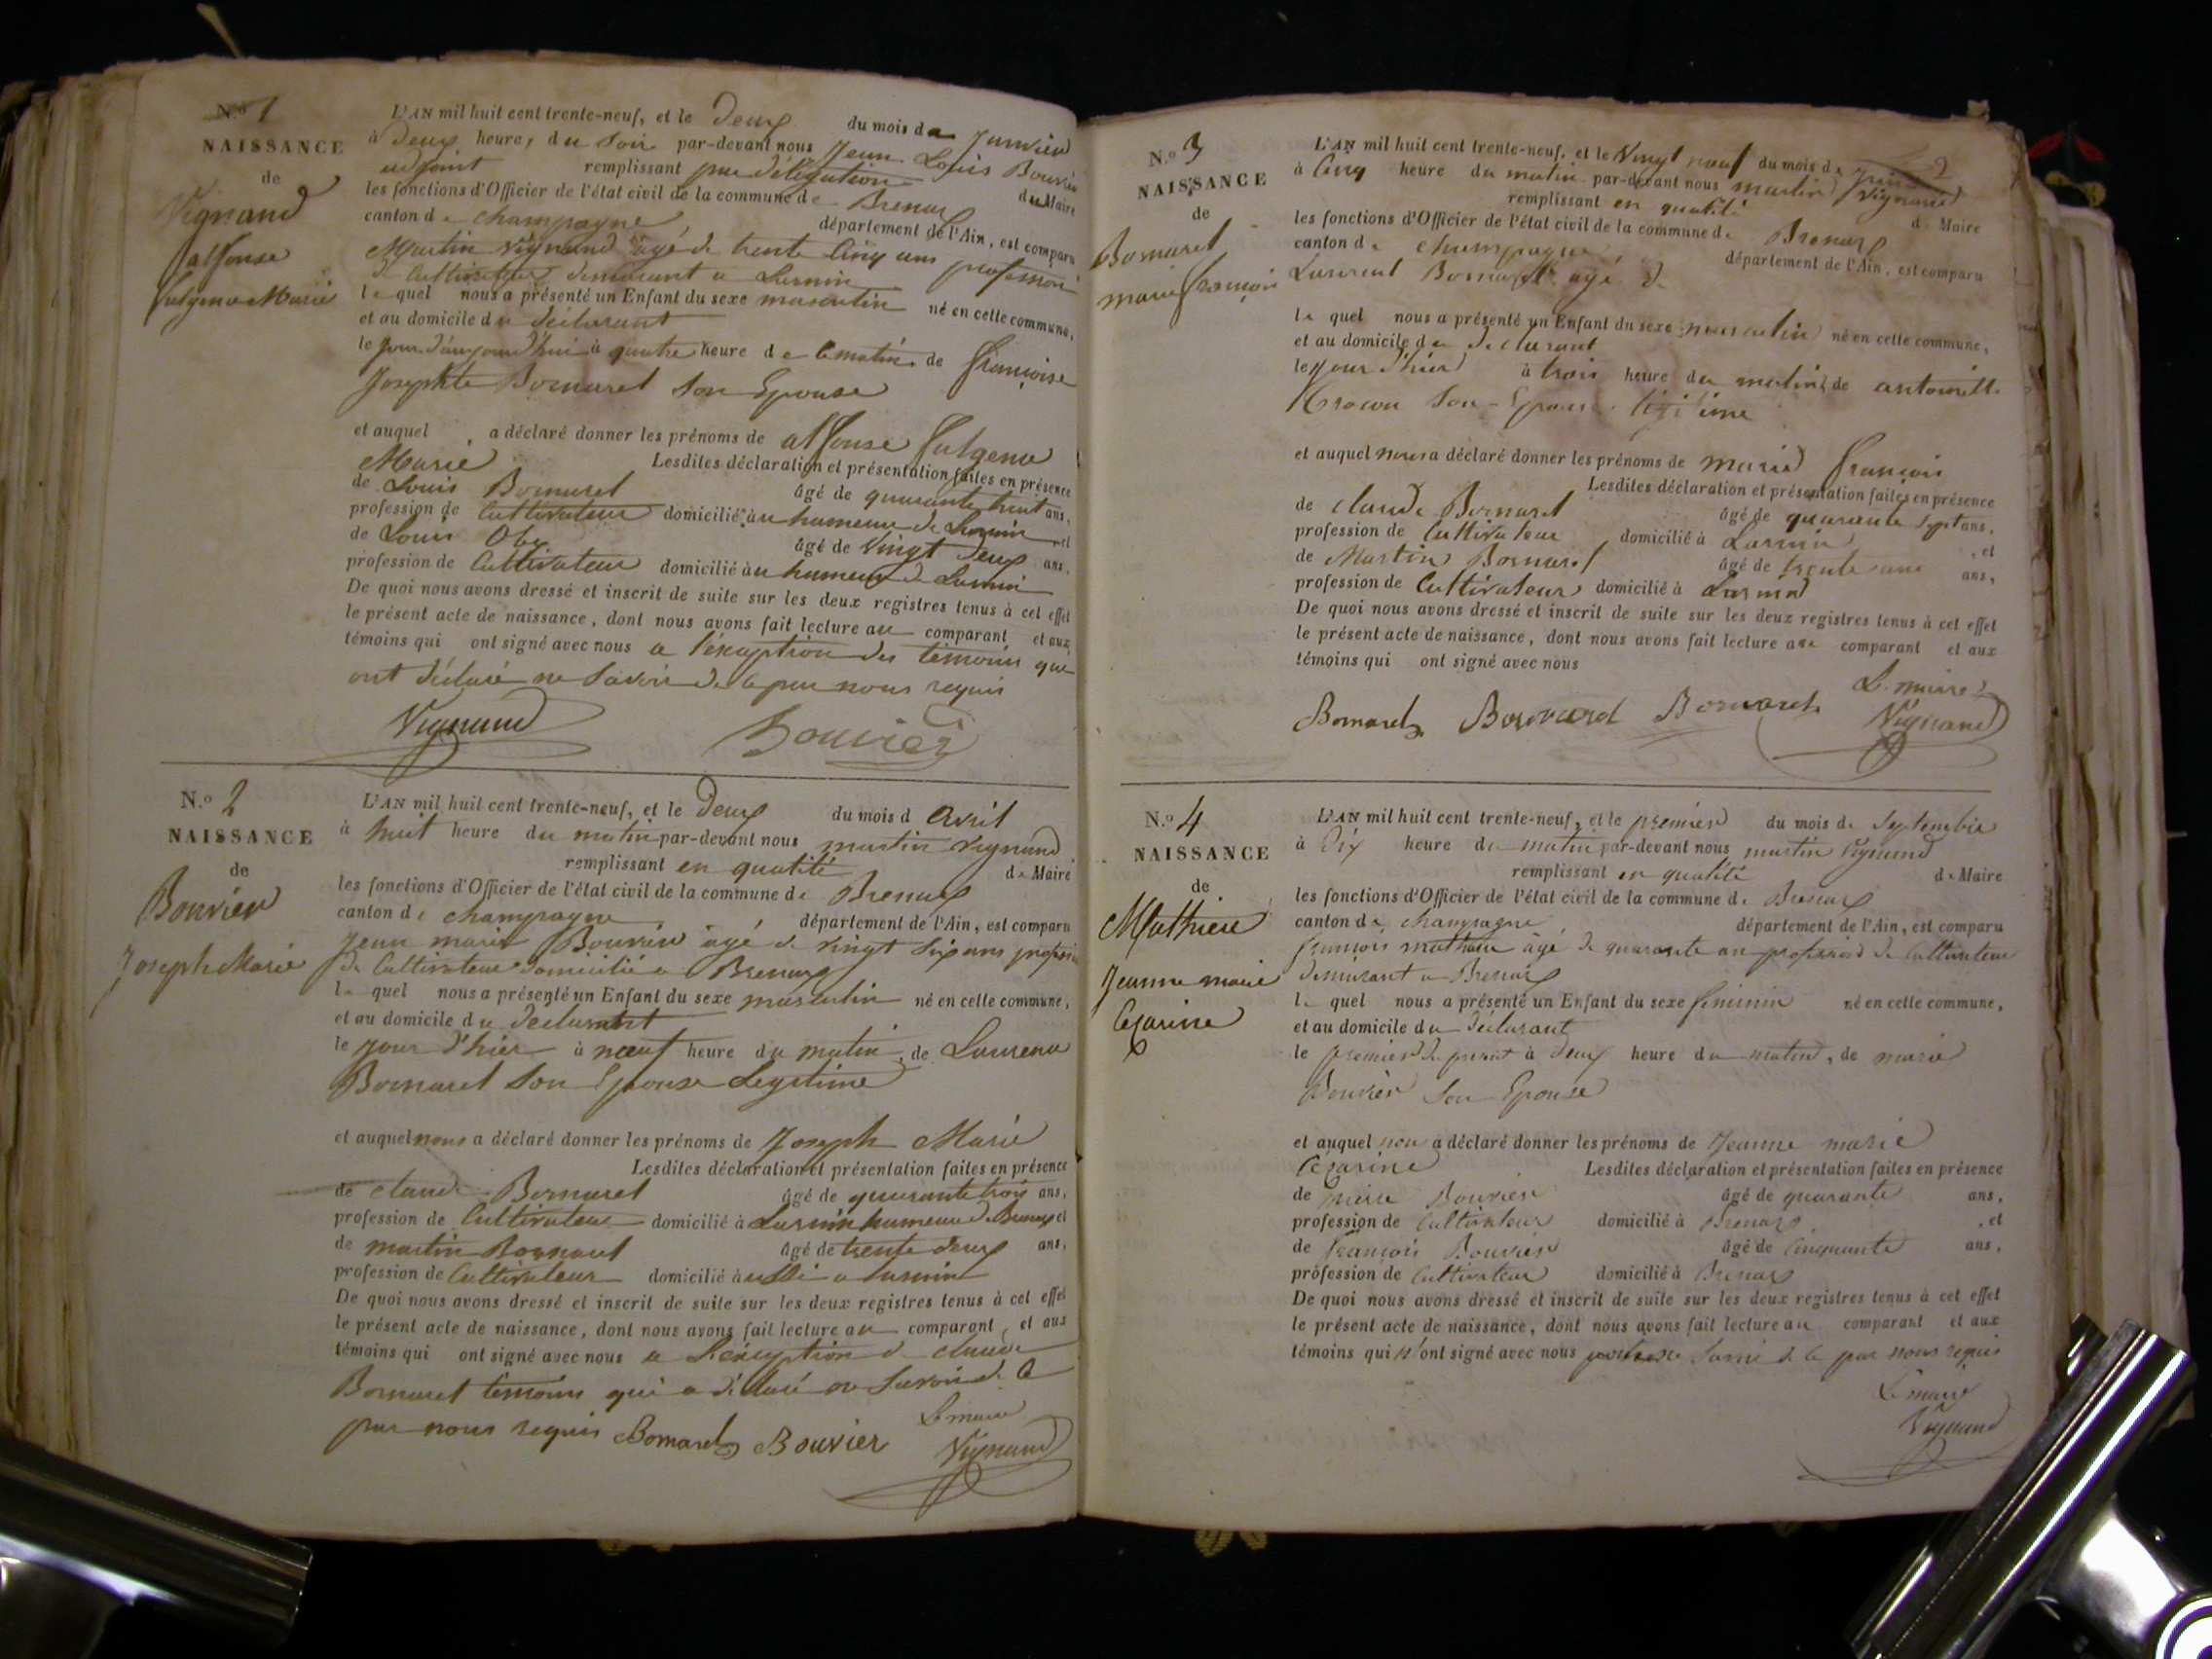 N.o 1
NAISSANCE
de
Vignand
alfonse
fulgence Marie
L'AN mil huit cent trente-neuf, et le Deux du mois de Janvier
à Deux heure, du soir par-devant nous Jean Louis Bouvier
adjoint remplissant par délégation du Maire
les fonctions d'Officier de l'état civil de la commune de Brenaz
canton de champagne département de l'Ain, est comparu
Martin Vignand agé de trente Cinq ans profession
de Cultivateur demeurant a
le quel nous a présenté un Enfant du sexe masculin né en cette commune,
et au domicile du déclarant
le Jour d'aujourd'hui à quatre heure de matin de françoise
Josephte Bornaret Son Epouse
et auquel , a déclaré donner les prénoms de alfonse fulgence
Marie Lesdites déclaration et présentation faites en présence
de Louis Bornaret âgé de quarante huit ans,
profession de Cultivateur domicilié au hameau de et
de Louis âgé de Vingt Deux ans,
profession de Cultivateur domicilié au hameau de
De quoi nous avons dressé et inscrit de suite sur les deux registres tenus à cet effet
le présent acte de naissance, dont nous avons fait lecture au comparant et aux
témoins qui ont signé avec nous a l'exception des témoins que
ont déclaré ne Savoir de ce par nous requis
Vignand Bouvier
N.o 2
NAISSANCE
de
Bouvier
Joseph Marie
L'AN mil huit cent trente-neuf, et le Deux du mois d Avril
à huit heure du matin par-devant nous martin Vignand
remplissant en qualité de Maire
les fonctions d'Officier de l'état civil de la commune de Brenaz
canton de champagne département de l'Ain, est comparu
Jean marie Bouvier agé de vingt Six ans profession
de Cultivateur domicilié a Brenaz
le quel nous a présenté un Enfant du sexe masculin né en cette commune,
et au domicile du déclarant
le jour d'hier à neuf heure du matin, de Laurence
Bornaret Son Epouse Legitime
et auquel nous a déclaré donner les prénoms de Joseph Marie
Lesdites déclaration et présentation faites en présence
de claude Bornaret âgé de quarante trois ans,
profession de Cultivateur domicilié à hameau de Brenaz et
de martin Bornaret âgé de trente deux ans,
profession de Cultivateur domicilié aussi a
De quoi nous avons dressé et inscrit de suite sur les deux registres tenus à cet effet
le présent acte de naissance, dont nous avons fait lecture au comparant, et aux
témoins qui ont signé avec nous a l'exception de claude
Bornaret témoins qui a déclaré ne Savoir de ce
par nous requis Bornaret Bouvier Le maire
Vignand
N.o 3
NAISSANCE
de
Bornaret
marie françois
L'AN mil huit cent trente-neuf, et le Vingt neuf du mois de
à Cinq heure du matin par-devant nous martin Vignand
remplissant en qualité de Maire
les fonctions d'Officier de l'état civil de la commune de Brenaz
canton de champagne département de l'Ain, est comparu
Laurent Bornaret agé de
le quel nous a présenté un Enfant du sexe masculin né en cette commune,
et au domicile du déclarant
le jour d'hier à trois heure du matin, de antoinette
Son Epouse légitime
et auquel nous a déclaré donner les prénoms de marie françois
Lesdites déclaration et présentation faites en présence
de claude Bornaret âgé de quarante Sept ans,
profession de Cultivateur domicilié à , et
de Martin Bornaret âgé de trente ans,
profession de Cultivateur domicilié à
De quoi nous avons dressé et inscrit de suite sur les deux registres tenus à cet effet
le présent acte de naissance, dont nous avons fait lecture au comparant et aux
témoins qui ont signé avec nous
Le maire
Bornaret Bornaret Vignand
N.o 4
NAISSANCE
de
Mathieu
Jeanne marie
Cezarine
L'AN mil huit cent trente-neuf, et le premier du mois de Septembre
à Dix heure du matin par-devant nous martin Vignand
remplissant en qualité de Maire
les fonctions d'Officier de l'état civil de la commune de Brenaz
canton de champagne département de l'Ain, est comparu
françois mathieu agé de quarante an profession de Cultivateur
demeurant a Brenaz
le quel nous a présenté un Enfant du sexe féminin né en cette commune,
et au domicile du déclarant
le premier du présent à deux heure du matin, de marie
Bouvier Son Epouse
et auquel nous a déclaré donner les prénoms de Jeanne marie
Cezarine Lesdites déclaration et présentation faites en présence
de Bouvier âgé de quarante ans,
profession de Cultivateur domicilié à Brenaz , et
de françois Bouvier âgé de Cinquante ans,
profession de Cultivateur domicilié à Brenaz
De quoi nous avons dressé et inscrit de suite sur les deux registres tenus à cet effet
le présent acte de naissance, dont nous avons fait lecture au comparant et aux
témoins qui n'ont signé avec nous de ce par nous requis
Le maire
Vignand